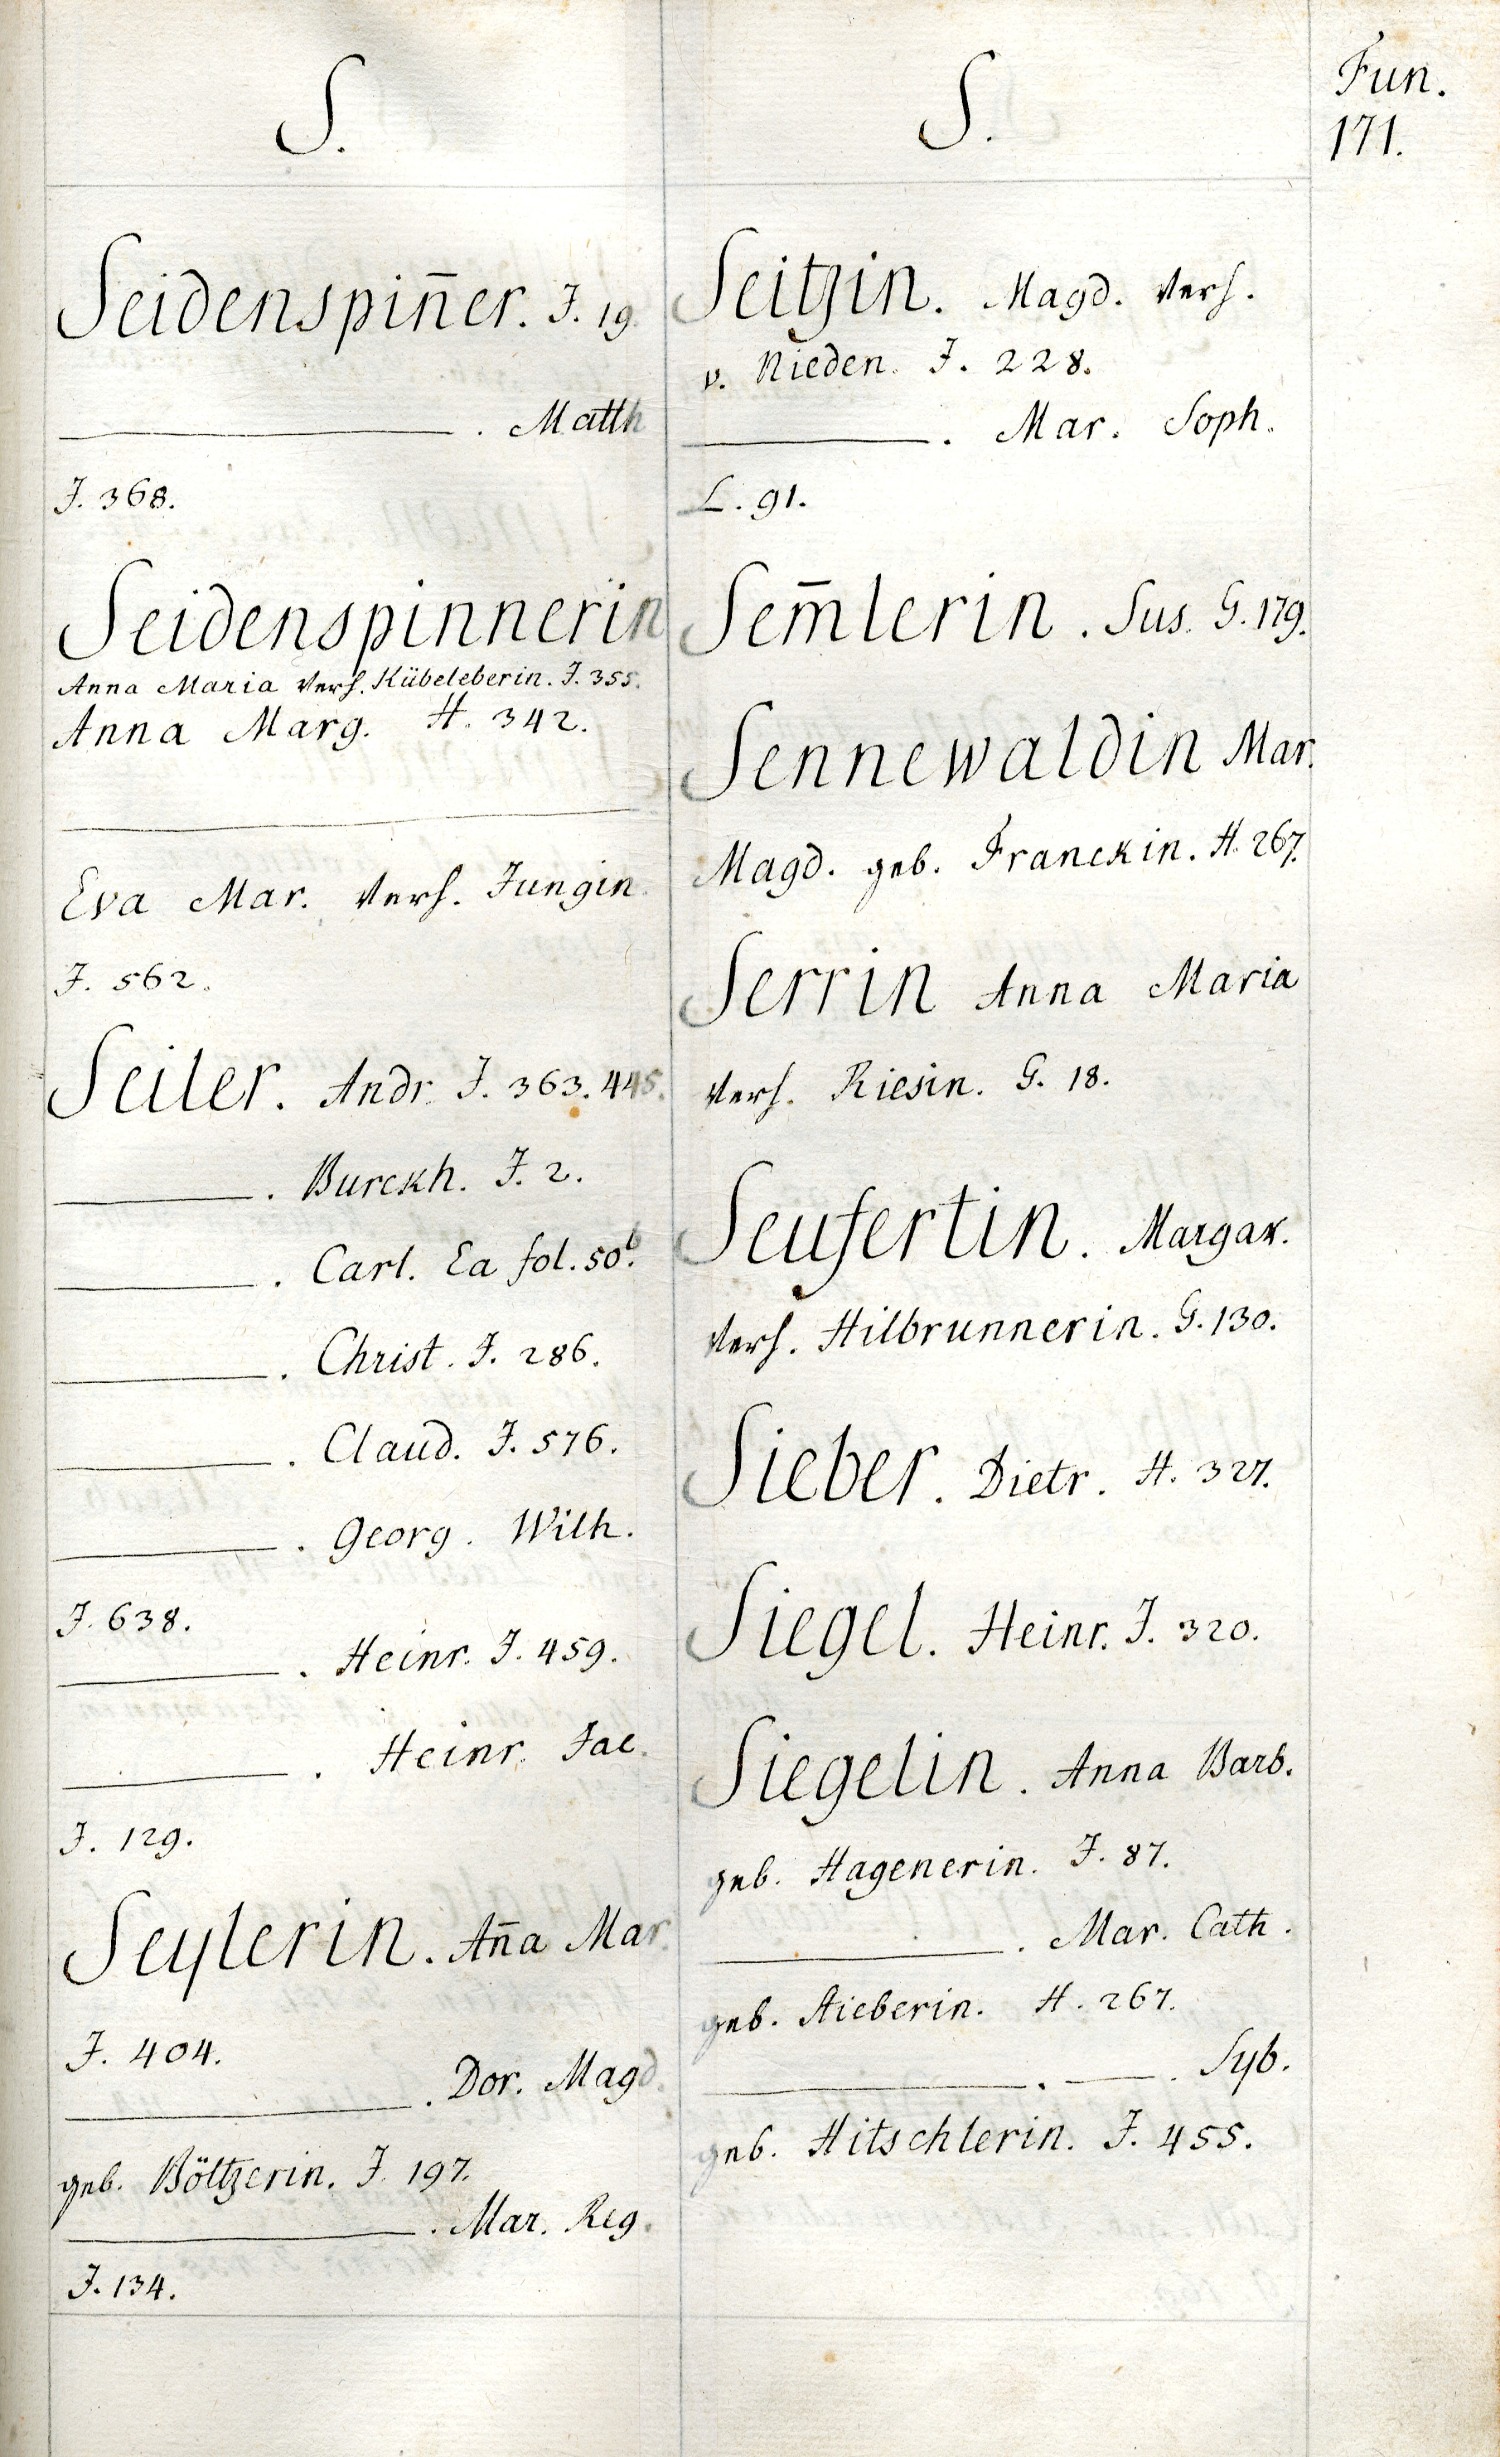 Fun.
171.
S.
Seidenspiñer. J. 19.
———. Matth
J. 368.
Seidenspinnerin
Anna Maria verh. Kübeleberin. J. 355.
Anna Marg. H. 342.
———
Eva Mar. verh. Jungin.
J. 562.
Seiler. Andr. J. 363. 445.
———. Burckh. J. 2.
———. Carl. Ea fol. 50b.
———. Christ. J. 286.
———. Claud. J. 576.
———. Georg. Wilh.
J. 638.
———. Heinr. J. 459.
———. Heinr. Jac.
J. 129.
Seylerin. Aña Mar.
J. 404.
———. Dor. Magd.
geb. Böltzerin. J. 197.
———. Mar. Reg.
J. 134.
S.
Seitzin. Magd. verh.
v. Nieden. J. 228.
———. Mar. Soph.
L. 91.
Sem̄lerin. Sus. G. 179.
Sennewaldin Mar.
Magd. geb. Franckin. H. 267.
Serrin Anna Maria
verh. Riesin. G. 18.
Seufertin. Margar.
verh. Hilbrunnerin. G. 130.
Sieber. Dietr. H. 327.
Siegel. Heinr. J. 320.
Siegelin. Anna Barb.
geb. Hagenerin. J. 87.
———. Mar. Cath.
geb. Aieberin. H. 267.
———. ———. Syb.
geb. Hitschlerin. J. 455.